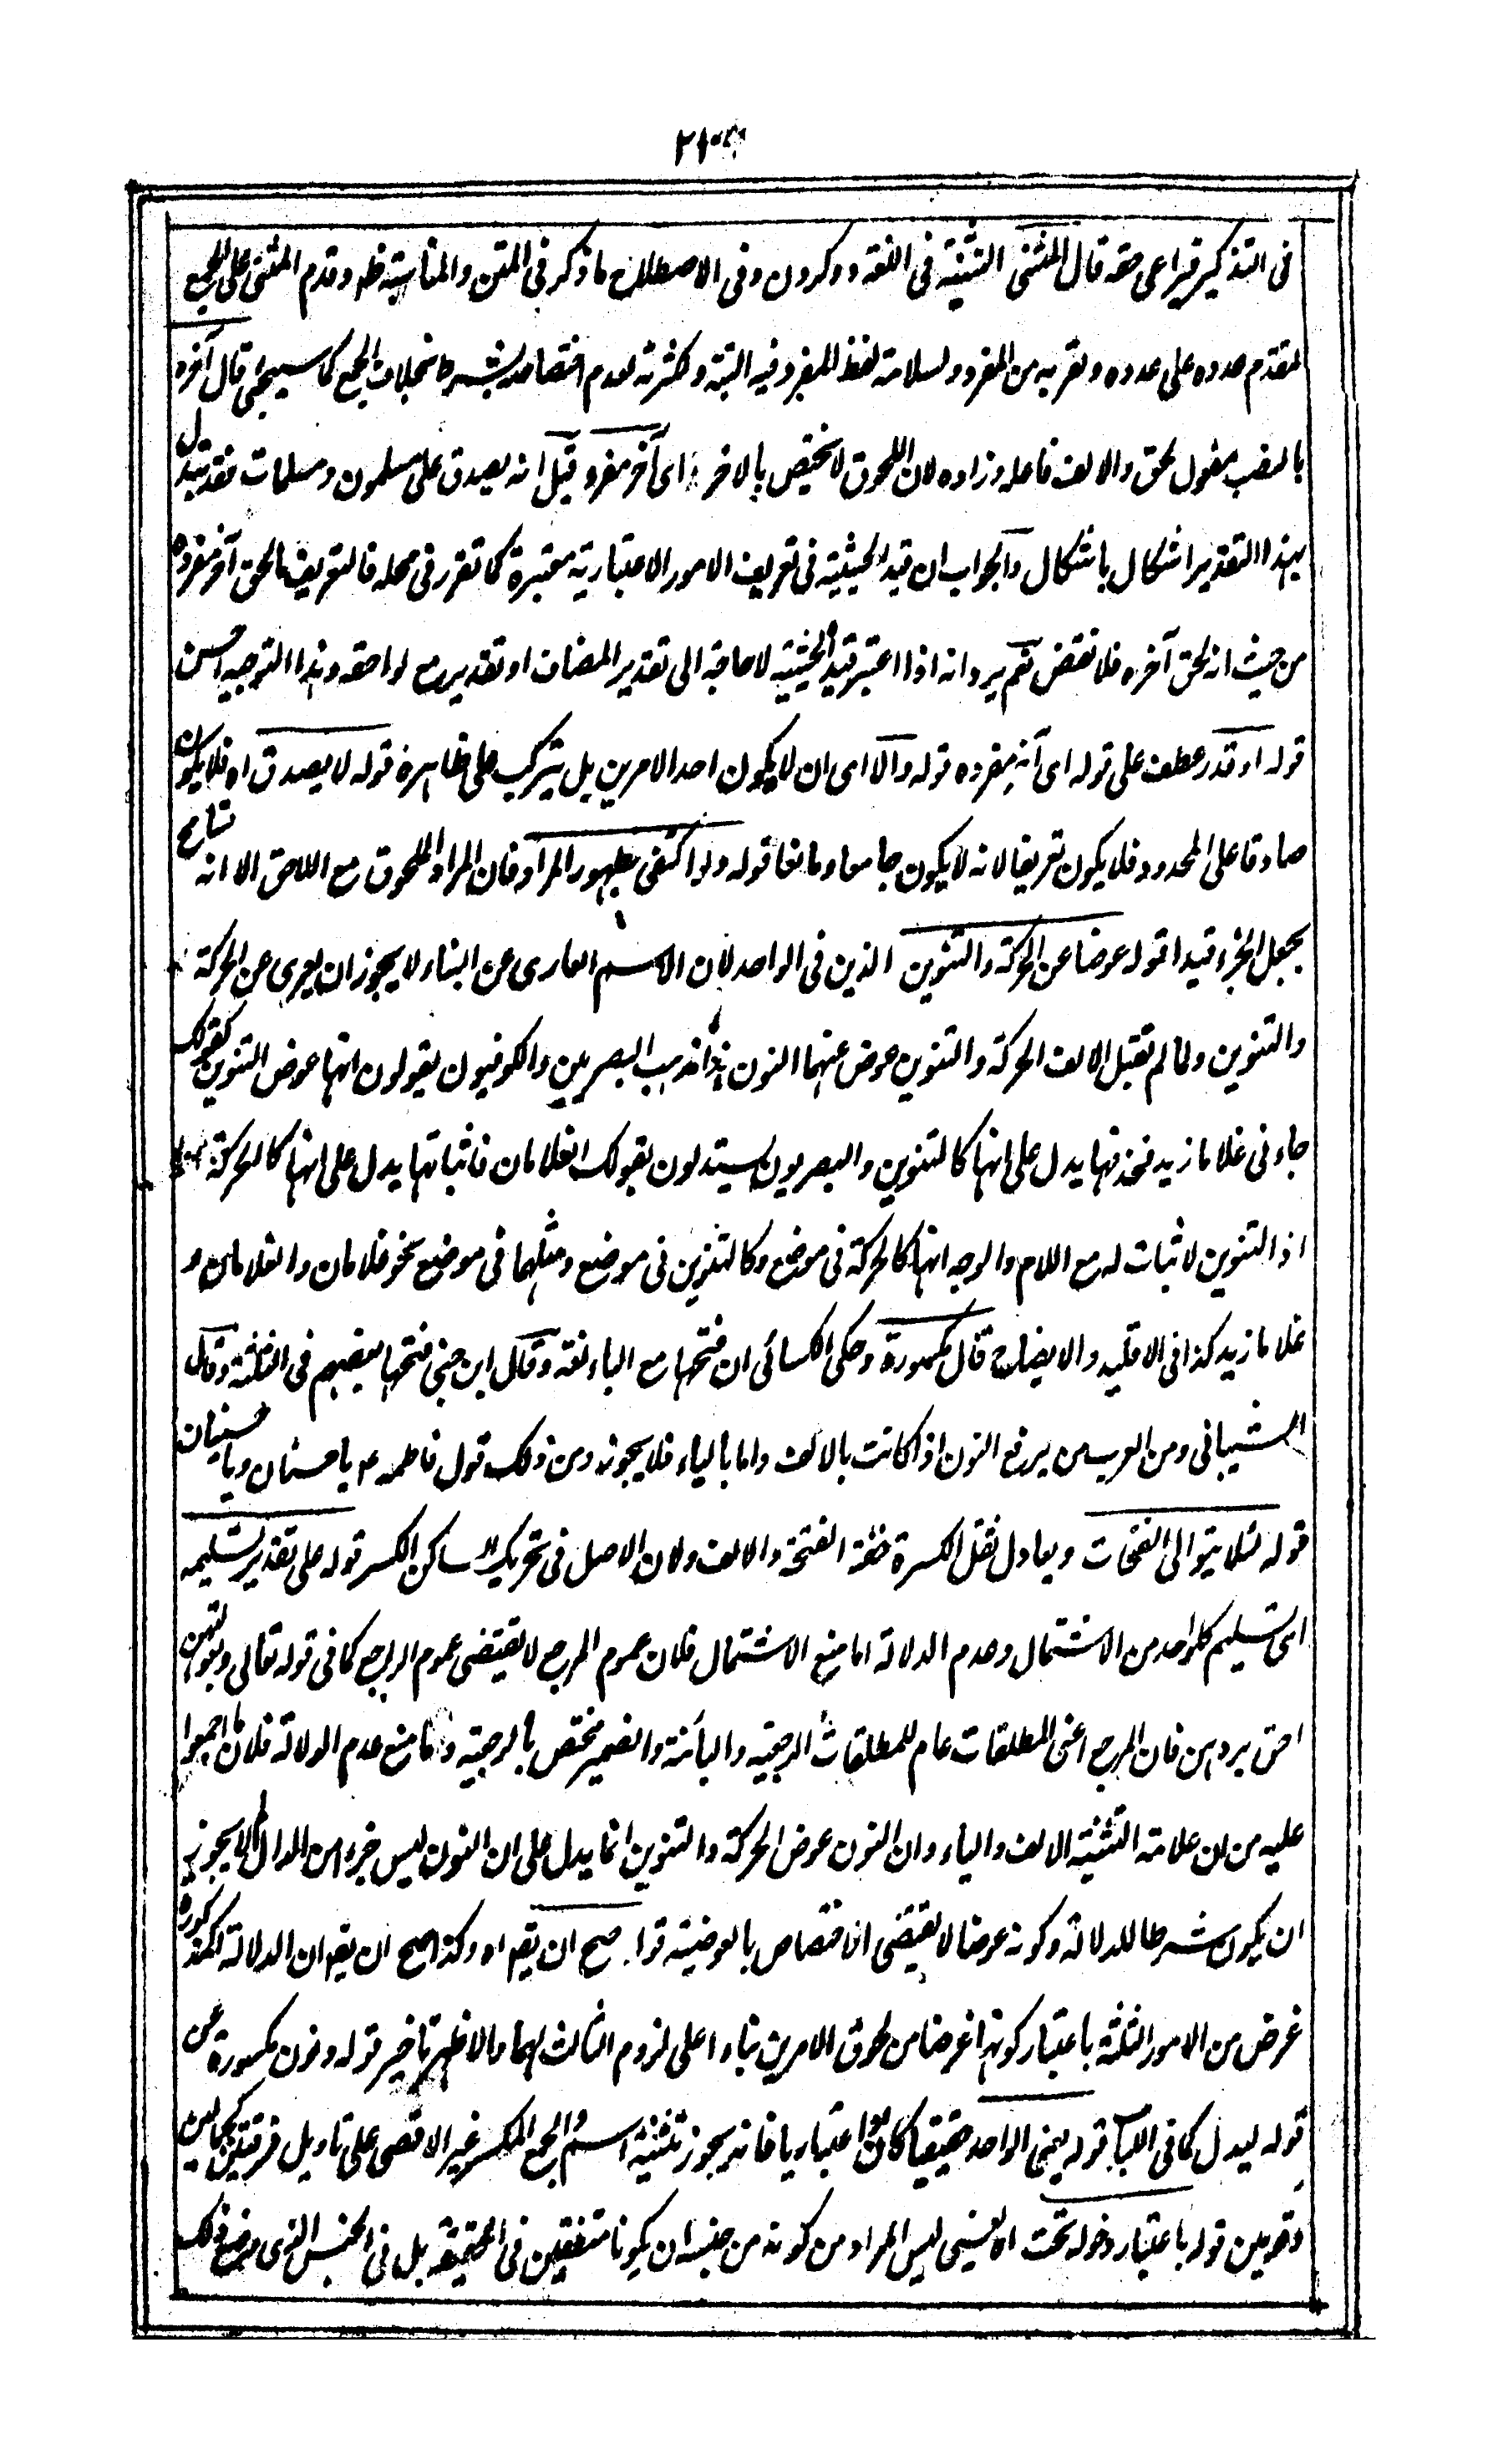 فى التذكير فيراعى حقه قال المثنى التثنية فى اللغة دوكردن وفى الاصطلاح ما ذكر فى المتن والمناسبة ظ وقدم المثنى على الجمع
لتقدم عدده على عدده ولقربه من المفرد ولسلامة لفظ المفرد فيه البتة وكثرته لعدم اختصاصه بشرط بخلاف الجمع كما سيجئ قال آخره
بالنصب مفعول لحق والالف فاعله وزاده لان اللحوق لا يختص بالاخر اى آخر مفرده قيل انه يصدق على مسلمون ومسلمات فقد تبدل
بهذا التقدير اشكال باشكال والجواب ان قيد الحيثية فى تعريف الامور الاعتبارية معتبرة كما تقرر فى محله فالتعريف ما لحق آخر مفرده
من حيث انه لحق آخره فلا نقض نعم يرد انه اذا اعتبر قيد الحيثية لا حاجة الى تقدير المضاف او تقدير مع لواحقه وهذا التوجيه احسن
قوله او قدر عطف على قوله اى آخر مفرده قوله والا اى ان لا يكون احد الامرين بل يترك على ظاهره قوله لا يصدق اه فلا يكون
صادقا على المحدود فلا يكون تعريفا لانه لا يكون جامعا ومانعا قوله ولو اكتفى بظهور المراد فان المراد الملحوق مع اللاحق الا انه تسامح
بجعل الجزء قيدا قوله عوضا عن الحركة والتنوين الذين فى الواحد لان الاسم العارى عن البناء لا يجوز ان يعرى عن الحركة
والتنوين ولما لم تقبل الالف الحركة والتنوين عوض عنهما النون هذا مذهب البصريين والكوفيون يقولون انها عوض التنوين كقولك
جاءنى غلاما زيد فحذفها يدل على انها كالتنوين والبصريون يستدلون بقولك الغلامان فاثباتها يدل على انها كالحركة
اذ التنوين لا ثبات له مع اللام والوجه انها كالحركة فى موضع وكالتنوين فى موضع ومثلهما فى موضع نحو غلامان والغلامان و
غلاما زيد كذا فى الاقليد والايضاح قال مكسورة وحكى الكسائى ان فتحها مع الياء لغة وقال ابن جنى فتحها بعضهم فى الثلثة وقال
الشيبانى ومن العرب من يرفع النون اذا كانت بالالف واما بالياء فلا يجوز ومن ذلك قول فاطمة ع يا حسنان ويا حسينان
قوله لئلا يتوالى الفتحات ويعادل ثقل الكسرة خفة الفتحة والالف ولان الاصل فى تحريك الساكن الكسر قوله على تقدير تسليمه
اى تسليم كلواحد من الاشتمال وعدم الدلالة اما منع الاشتمال فلان عموم المرجع لا يقتضى عموم الراجع كما فى قوله تعالى وبعولتهن
احق بردهن فان المرجع اعنى المطلقات عام للمطلقات الرجعية والبائنة والضمير مختص بالرجعية واما منع عدم الدلالة فلان ما اجمعوا
عليه من ان علامة التثنية الالف والياء وان النون عوض الحركة والتنوين انما يدل على ان النون ليس جزء من الدال الا يجوز
ان يكون شرطا للدلالة وكونه عوضا لا يقتضى الاختصاص بالعوضية قوله صح ان يقم اه وكذا صح ان يقم ان الدلالة المذكورة
غرض من الامور الثلثة باعتبار كونها غرضا من لحوق الامرين بناء على لزوم الثالث لهما والاظهر تأخير قوله ونون مكسورة عن
قوله ليدل كما فى اللباب قوله يعنى الواحد حقيقيا كان او اعتباريا فانه يجوز تثنية اسم الجمع والجمع المكسر غير الاقصى على تاويل فرقتين كجمالين
وقومين قوله باعتبار دخوله تحت اه يعنى ليس المراد من كونه من جنسه ان يكونا متفقين فى الحقيقة بل فى الجنس الذى وضع ذلك